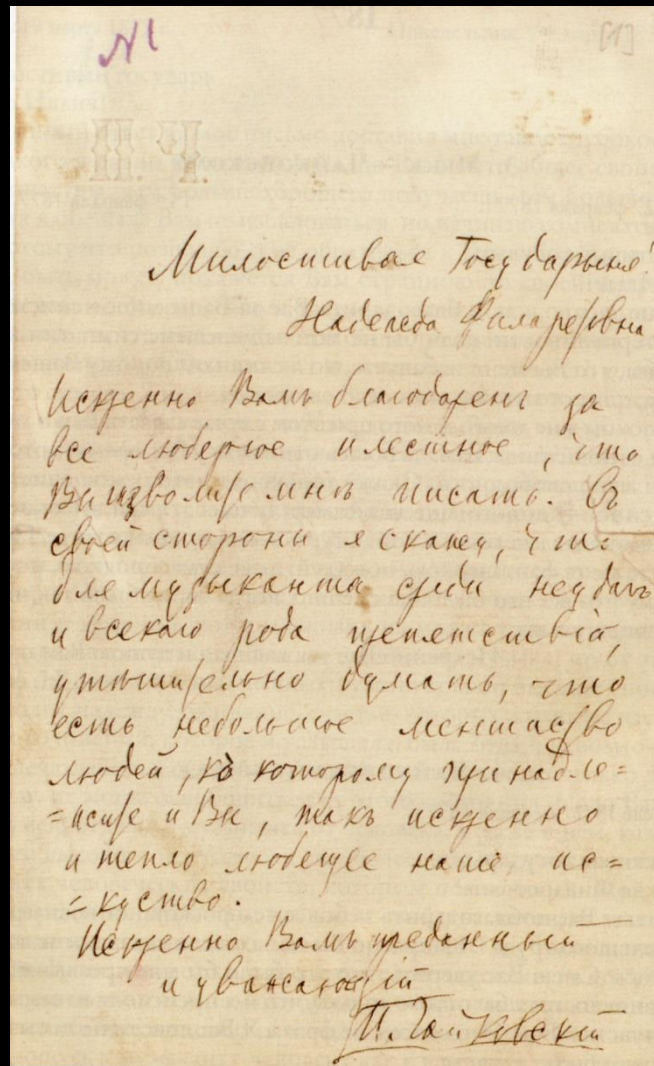 N 1
[1]
П. Ч.
Милостивая Государыня!
Надежда Филаретовна
Искренно Вамъ благодаренъ за
все любезное и лестное, что
Вы изволите мнѣ писать. Съ
своей стороны я скажу, что
для музыканта среди неудачъ
и всякаго рода препятствій,
утѣшительно думать, что
есть небольшое меншество
людей, къ которому принадле=
=жите и Вы, такъ искренно
и тепло любящее наше ис=
=куство.
Искренно Вамъ преданный
и уважающій
П. Чайковскій